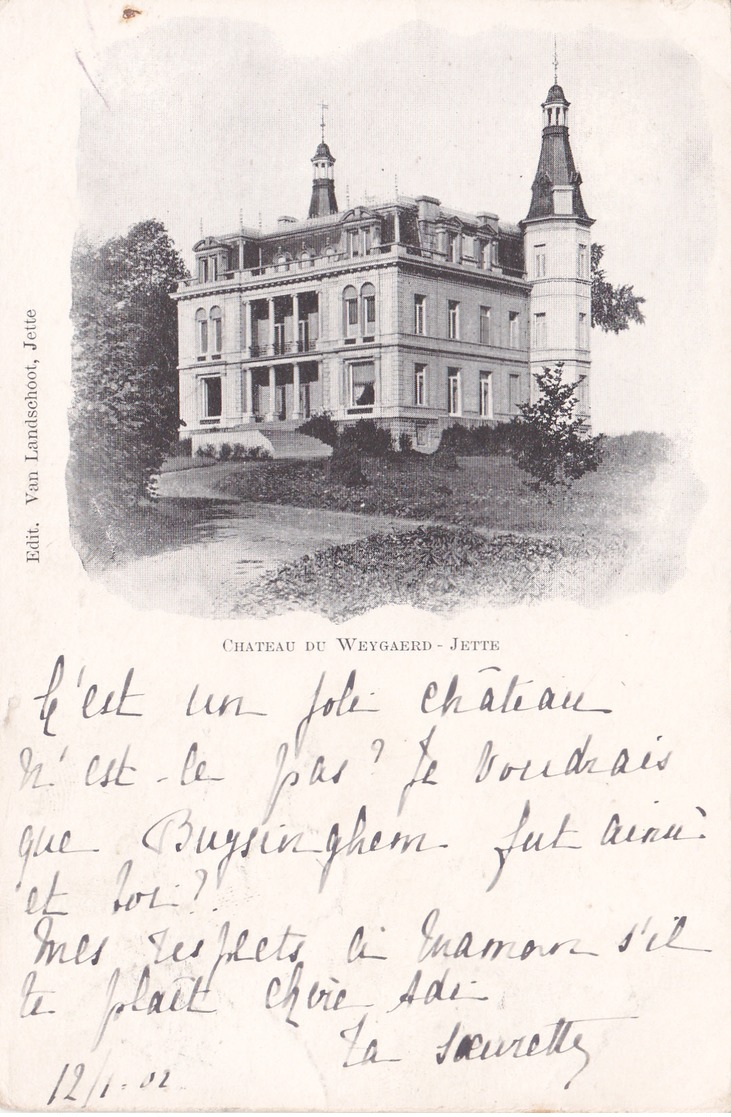 Edit. Van Landschoot, Jette
CHATEAU DU WEYGAERD - JETTE
C'est un joli château
n'est-ce pas? Je voudrais
que Buysinghem fut ainsi
et toi?
Mes respects à maman s'il
te plaît chère Adi
Ta sœurette
12/1-02